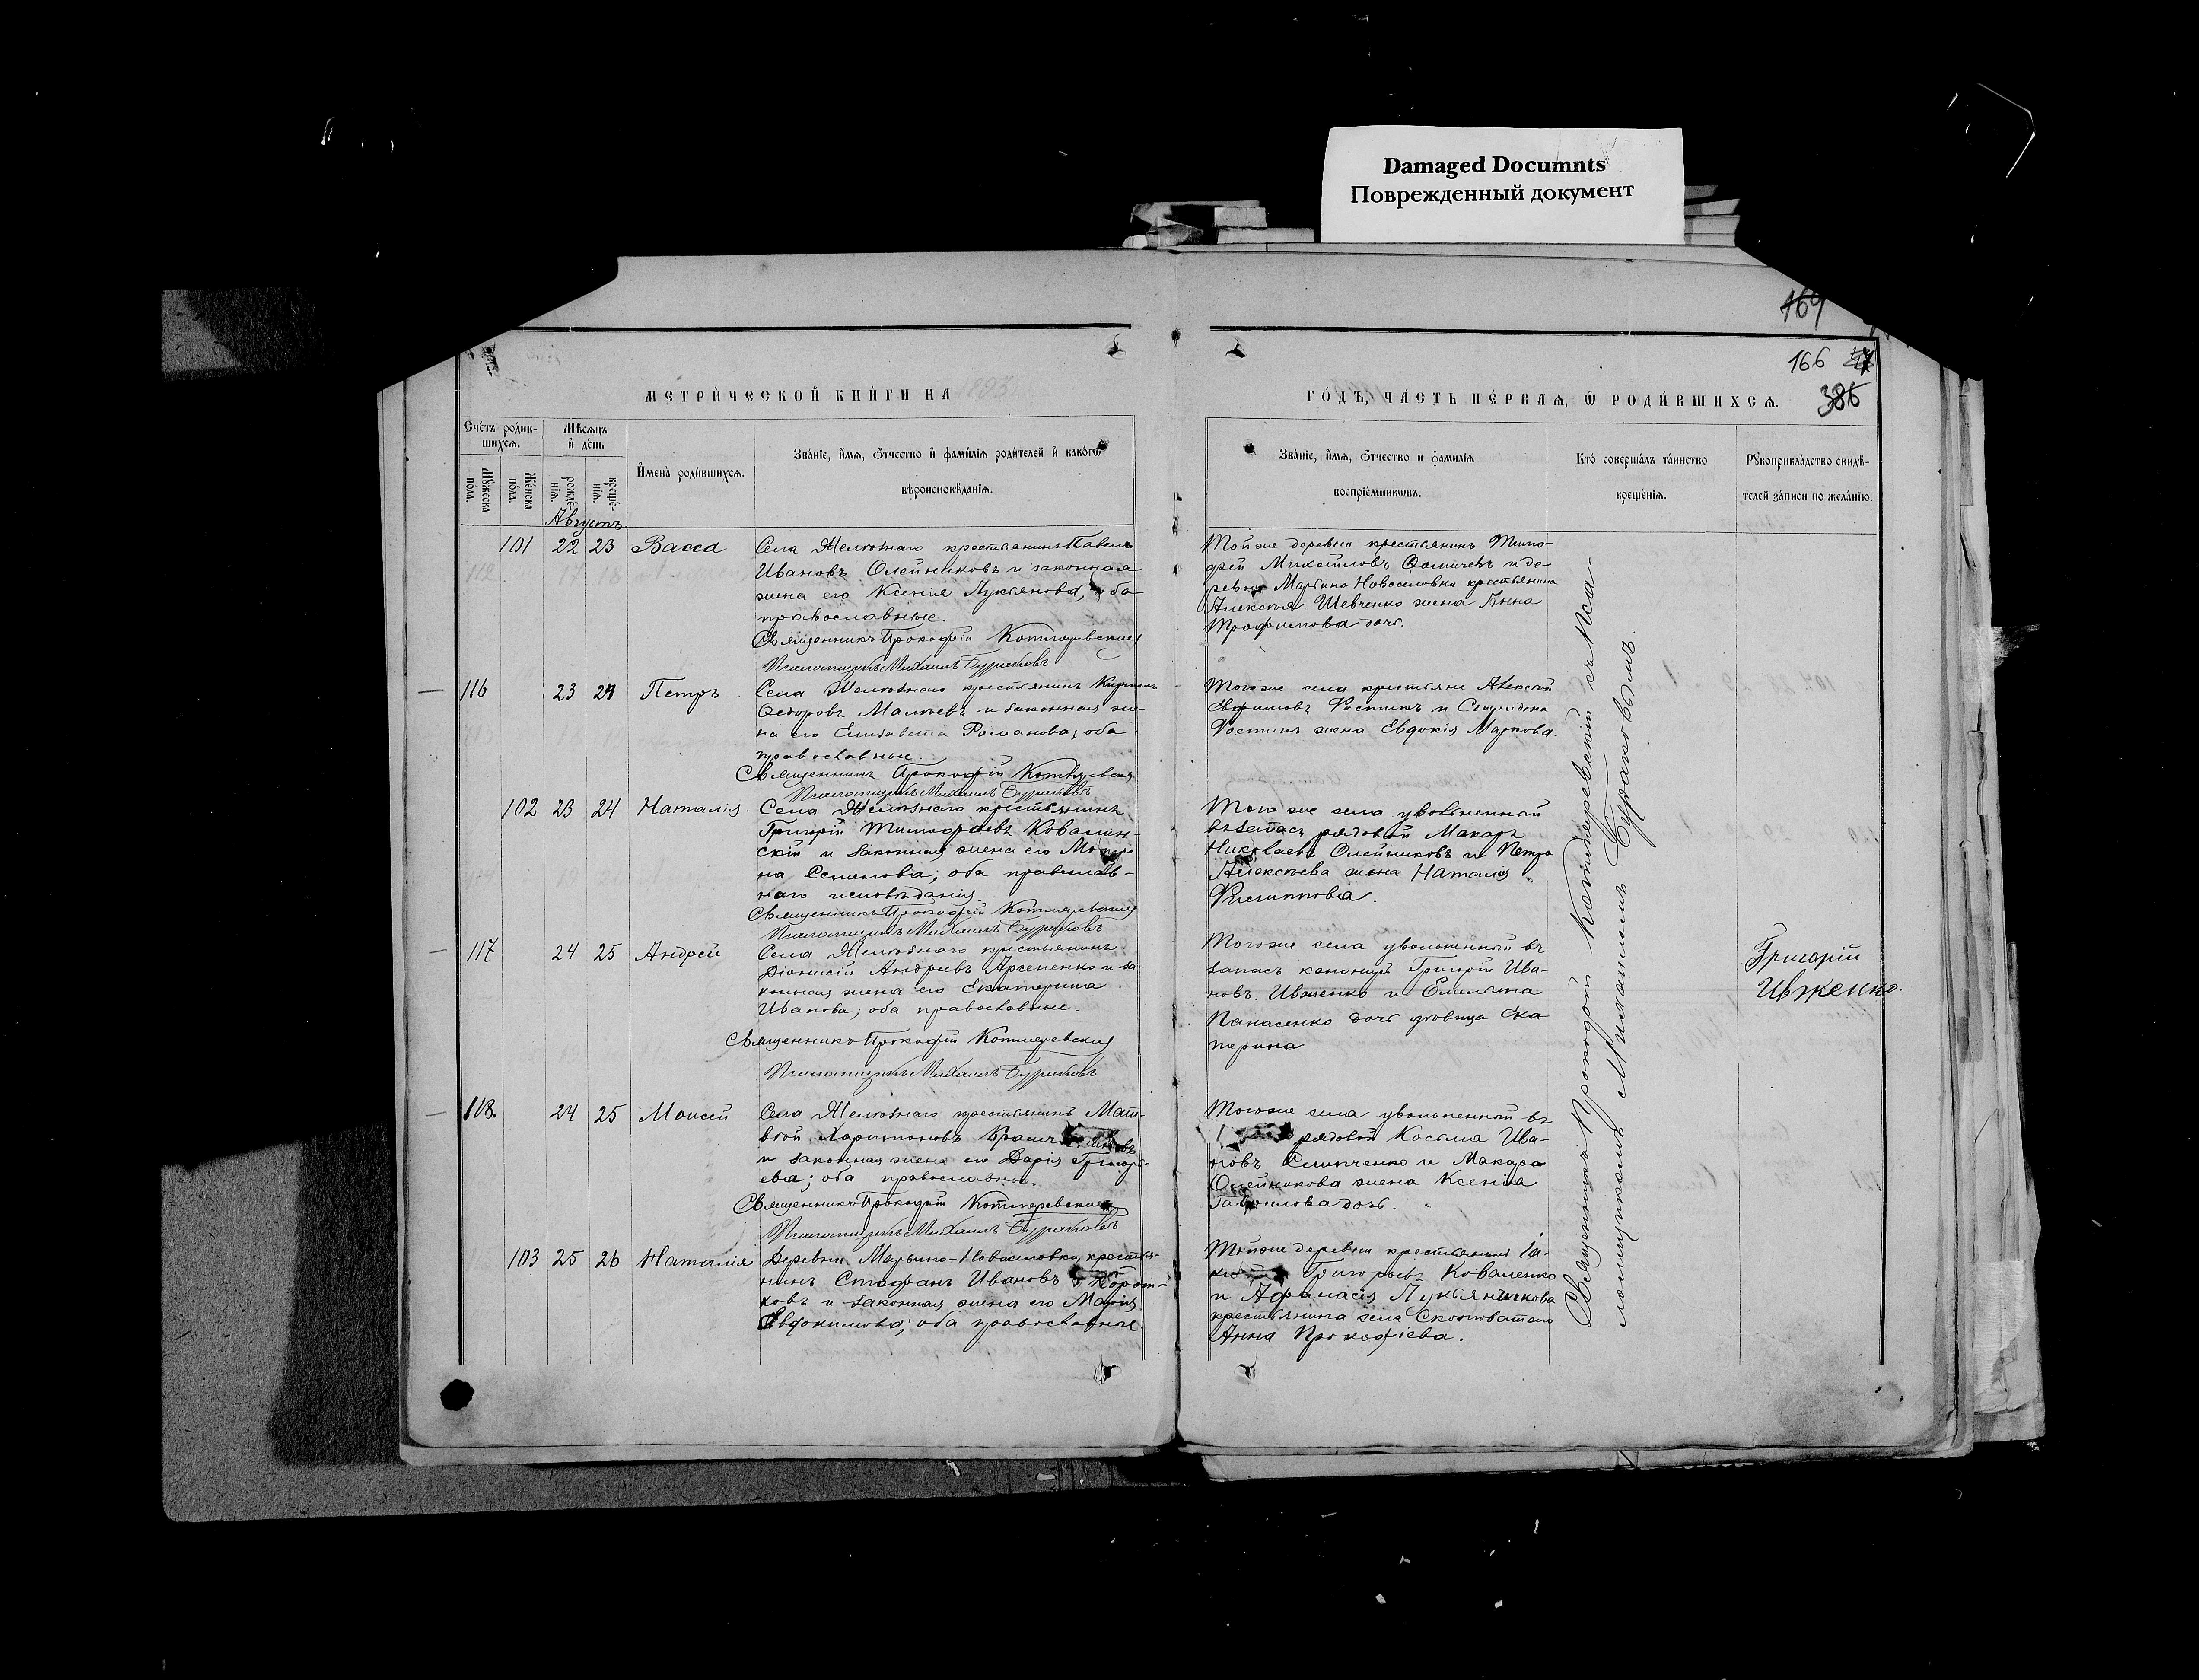 Damaged Documnts
Поврежденный документ
169
166
386
МЕТРИ́ЧЕСКОЙ КНИ́ГИ НА 1893
ГО́ДЪ, ЧА́СТЬ ПЕ́РВАѦ, Ѡ РОДИ́ВШИХСѦ.
Сче́тъ родив-
шихсѧ.
Мꙋжеска по́ла.
Же́нска по́ла.
Мѣсѧцъ и де́нь
рожде́-
нїѧ.
креще́-
нїѧ.
Имена̀ роди́вшихсѧ.
Зва́нїе, и́мѧ, ѻ́тчество и фами́лїѧ роди́телей и како́гѡ
вѣроисповѣ́данїѧ.
Зва́нїе, и́мѧ, ѻ́тчество и фамилїѧ
воспрїе́мникѡвъ.
Кто̀ соверша́лъ та́инство
креще́нїѧ.
Рꙋкоприкла́дство свидѣ́-
телей за́писи по жела́нїю.
Августъ
101 22 23 Васса
Села Желѣзнаго крестьянинъ Павелъ
Ивановъ Олейниковъ и законная
жена его Ксенія Лукьянова, оба
православные.
Священникъ Прокофій Котляревскій
Псаломщикъ Михаилъ Бураковъ
Той же деревни крестьянинъ Тимо-
фей Михайловъ и де-
ревни Марьино-Новоселовки крестьянина
Алексѣя Шевченко жена Анна
Трофимова дочь.
116 23 24 Петръ
Села Желѣзнаго крестьянинъ Кириллъ
Ѳедоровъ Малѣевъ и законная же-
на его Елизавета Романова, оба
православные.
Священникъ Прокофій Котляревскій
Псаломщикъ Михаилъ Бураковъ
Того же села крестьяне Алексѣй
Ефимовъ Костинъ и Спиридона
Костина жена Евдокія Маркова.
102 23 24 Наталія
Села Желѣзнаго крестьянинъ
Григорій Тимофѣевъ Ковалин-
скій и законная жена его
на Семенова; оба православ-
наго исповѣданія.
Священникъ Прокофій Котляревскій
Псаломщикъ Михаилъ Бураковъ
Того же села уволенный
въ запасъ рядовой Макаръ
Николаевъ Олейниковъ и Петра
Алексѣева жена Наталія
Филиппова.
117 24 25 Андрей
Села Желѣзнаго крестьянинъ
Діонисій Андреевъ Арсененко и за-
конная жена его Екатерина
Иванова; оба православные.
Священникъ Прокофій Котляревскій
Псаломщикъ Михаилъ Бураковъ
Того же села уволенный въ
запасъ канониръ Григорій Ива-
новъ Ивженко и Емельяна
Панасенко дочь дѣвица Ека-
терина
Григорій
Ивженко.
118. 24 25 Моисей
Села Желѣзнаго крестьянинъ Мат-
вѣй Харитоновъ
и законная жена его Дарія Григорь-
ева; оба православные.
Священникъ Прокофій Котляревскій
Псаломщикъ Михаилъ Бураковъ
Того же села уволенный въ
рядовой Косьма Ива-
новъ и Макара
Олейникова жена Ксенія
Гаврилова дочь.
103 25 26 Наталія
Деревни Марьино-Новоселовки крестья-
нинъ Стефанъ Ивановъ
ковъ и законная жена его Марія
Евдокимова; оба православные
Той же деревни крестьянинъ Іа-
Григорьевъ Коваленко
и Аѳанасія Лукьянчикова
крестьянина села Скотоватаго
Анна Прокофіева.
Священникъ Прокофій Котляревскій съ пса-
ломщикомъ Михаиломъ Бураковымъ.